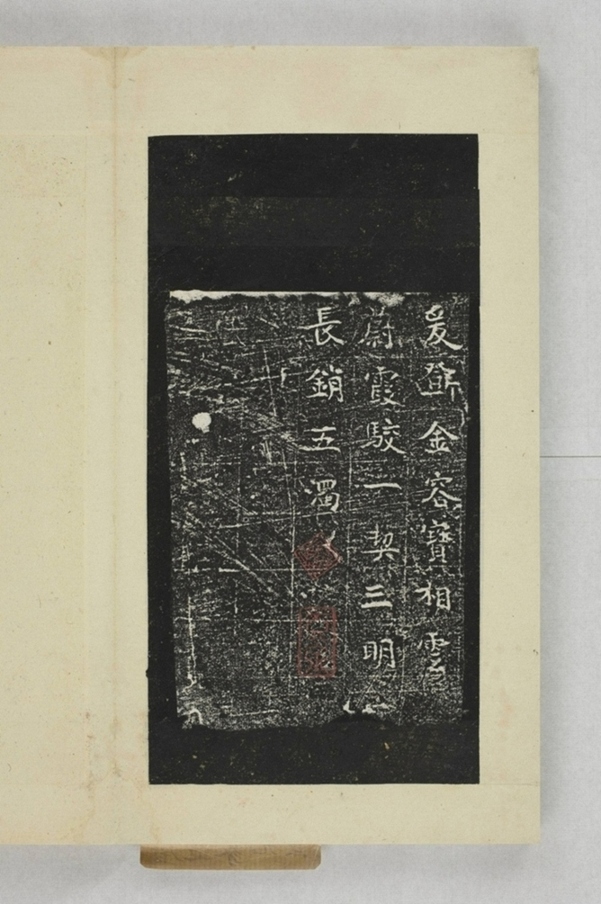 爰斲金容寶相雲
蔚霞駮一契三明
長銷五濁